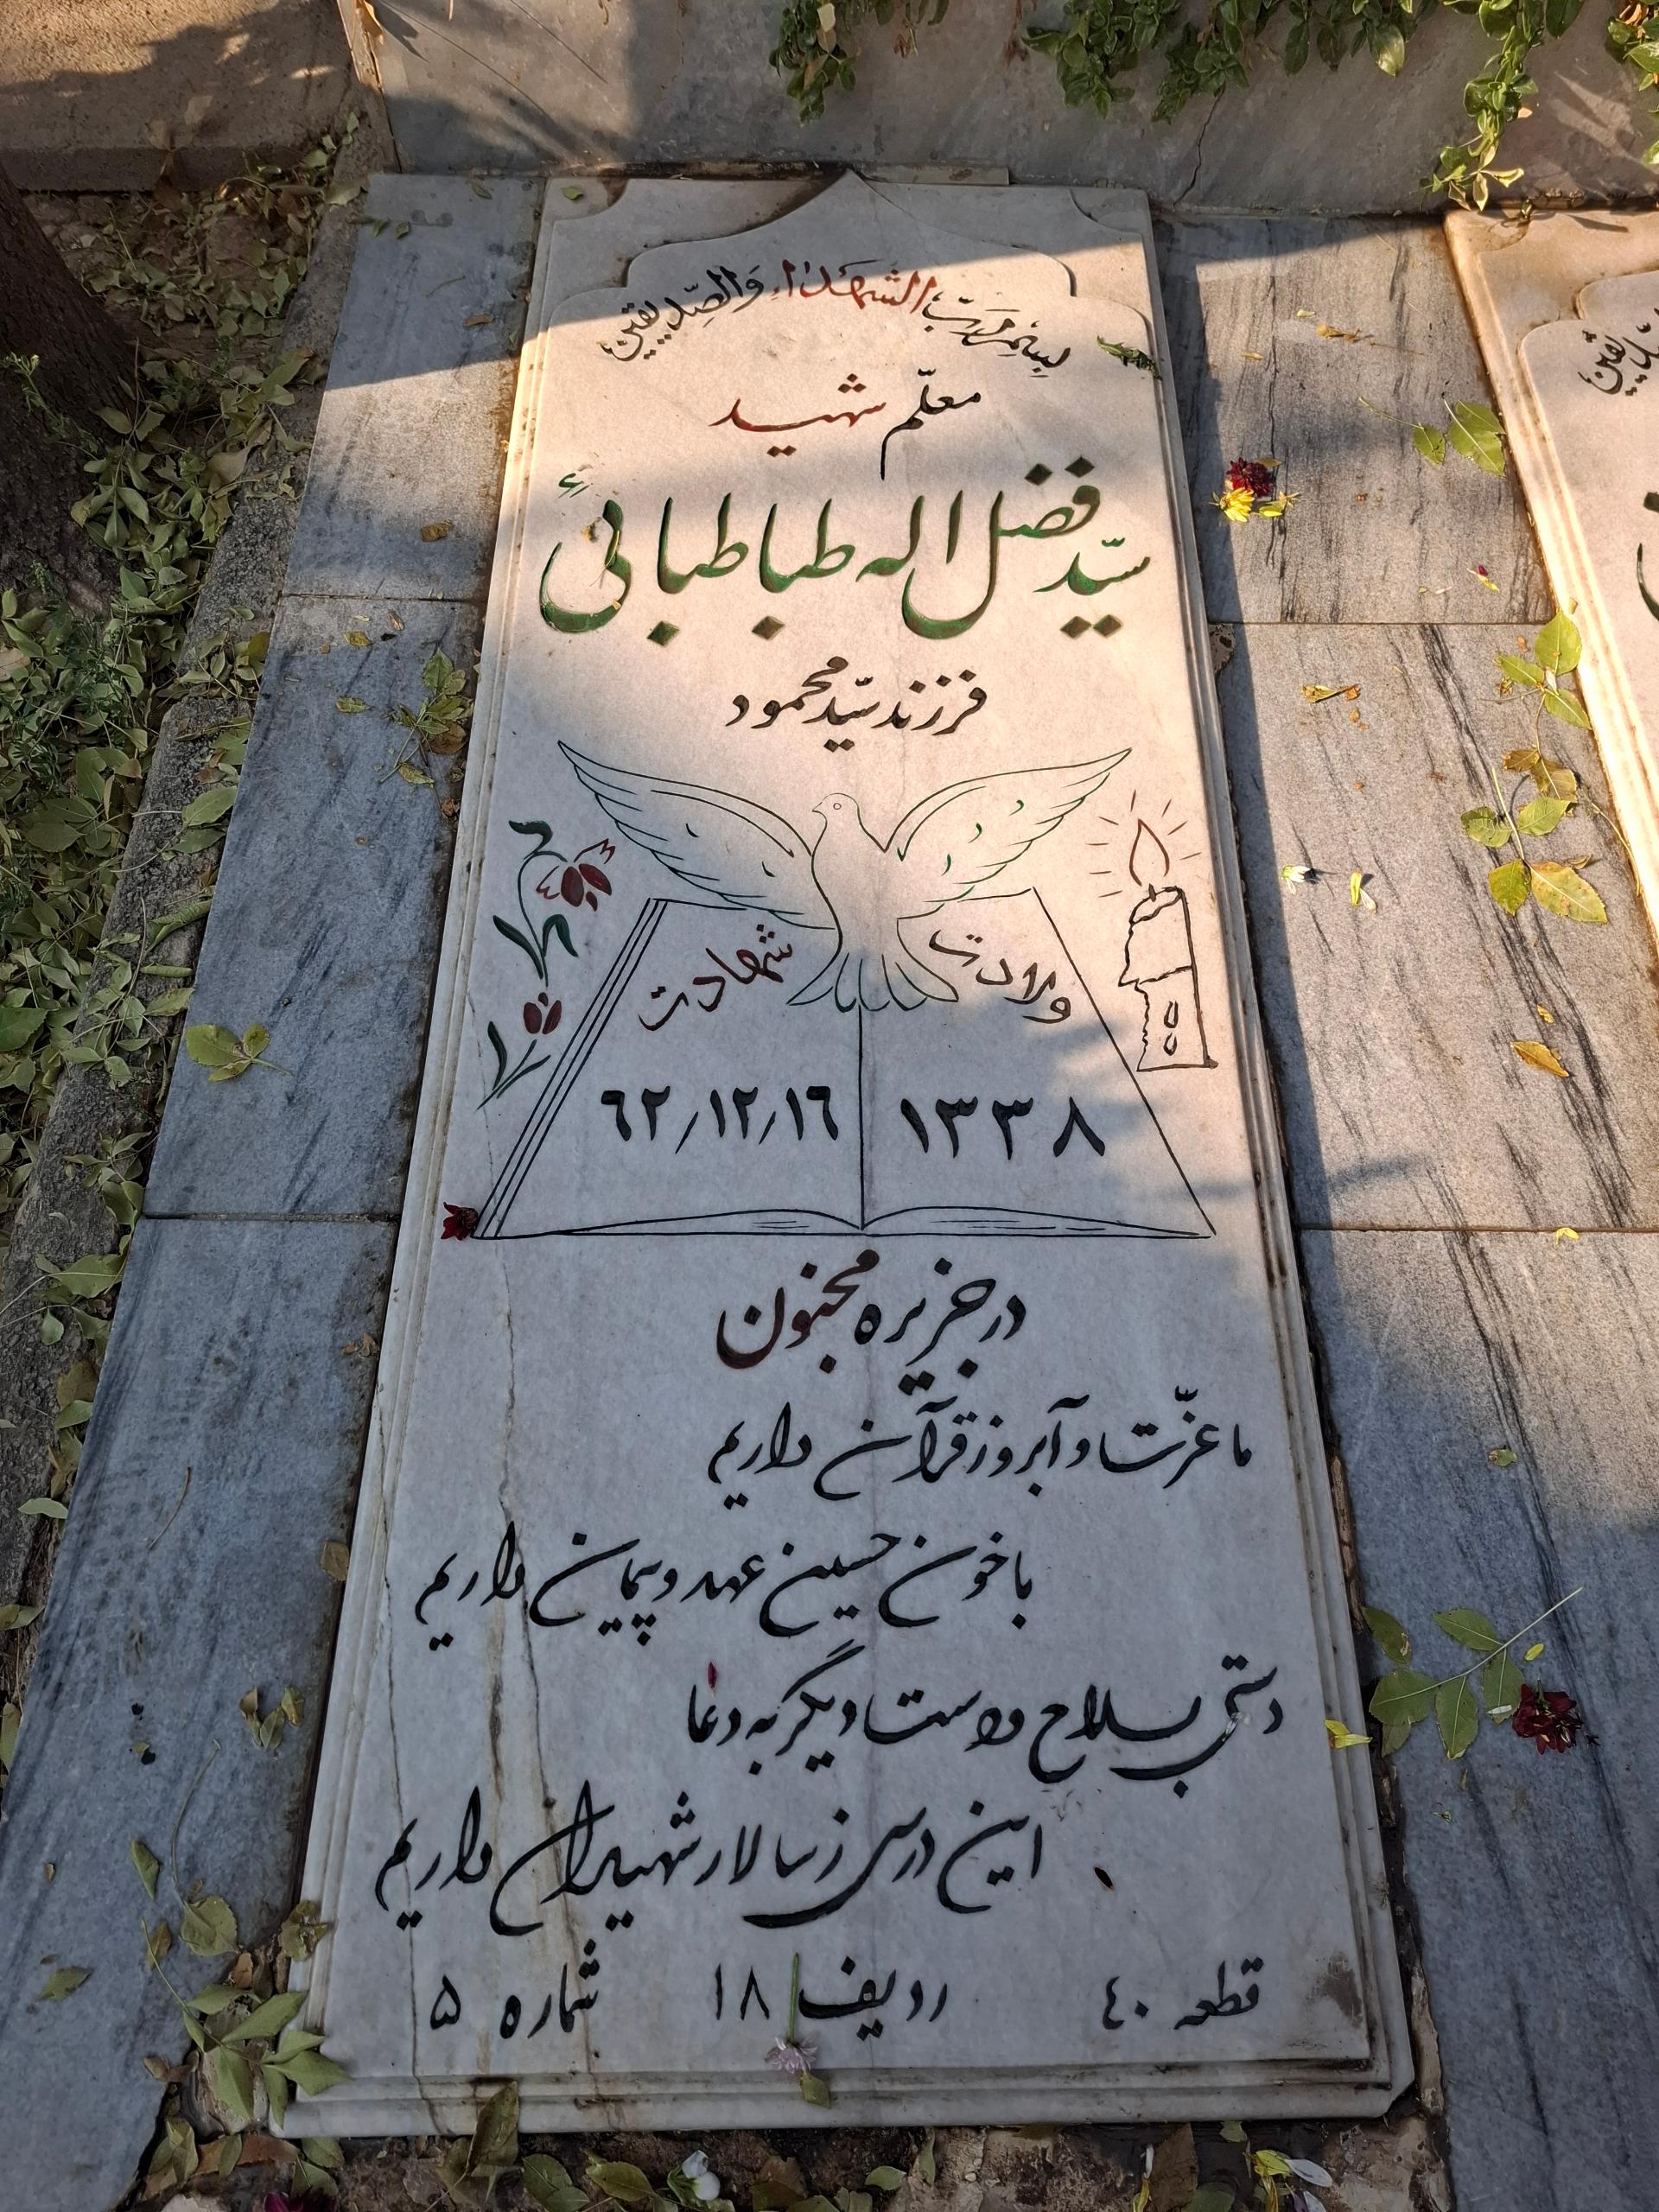 بِسمِ رَبّ الشهَداءِ وَالصِّدیقین
معلّم شهید
سیّد فضل اله طباطبائیٔ
فرزند سیّد محمود
ولادت
شهادت
۱۳۳۸
۶۲/۱۲/۱۶
در جزیره مجنون
ما عزّت و آبرو ز قرآن داریم
با خون حسین عهد و پیمان داریم
دستی بسلاح و دست دیگر به دعا
این درس ز سالار شهیدان داریم
قطعه ۴۰ ردیف ۱۸ شماره ۵